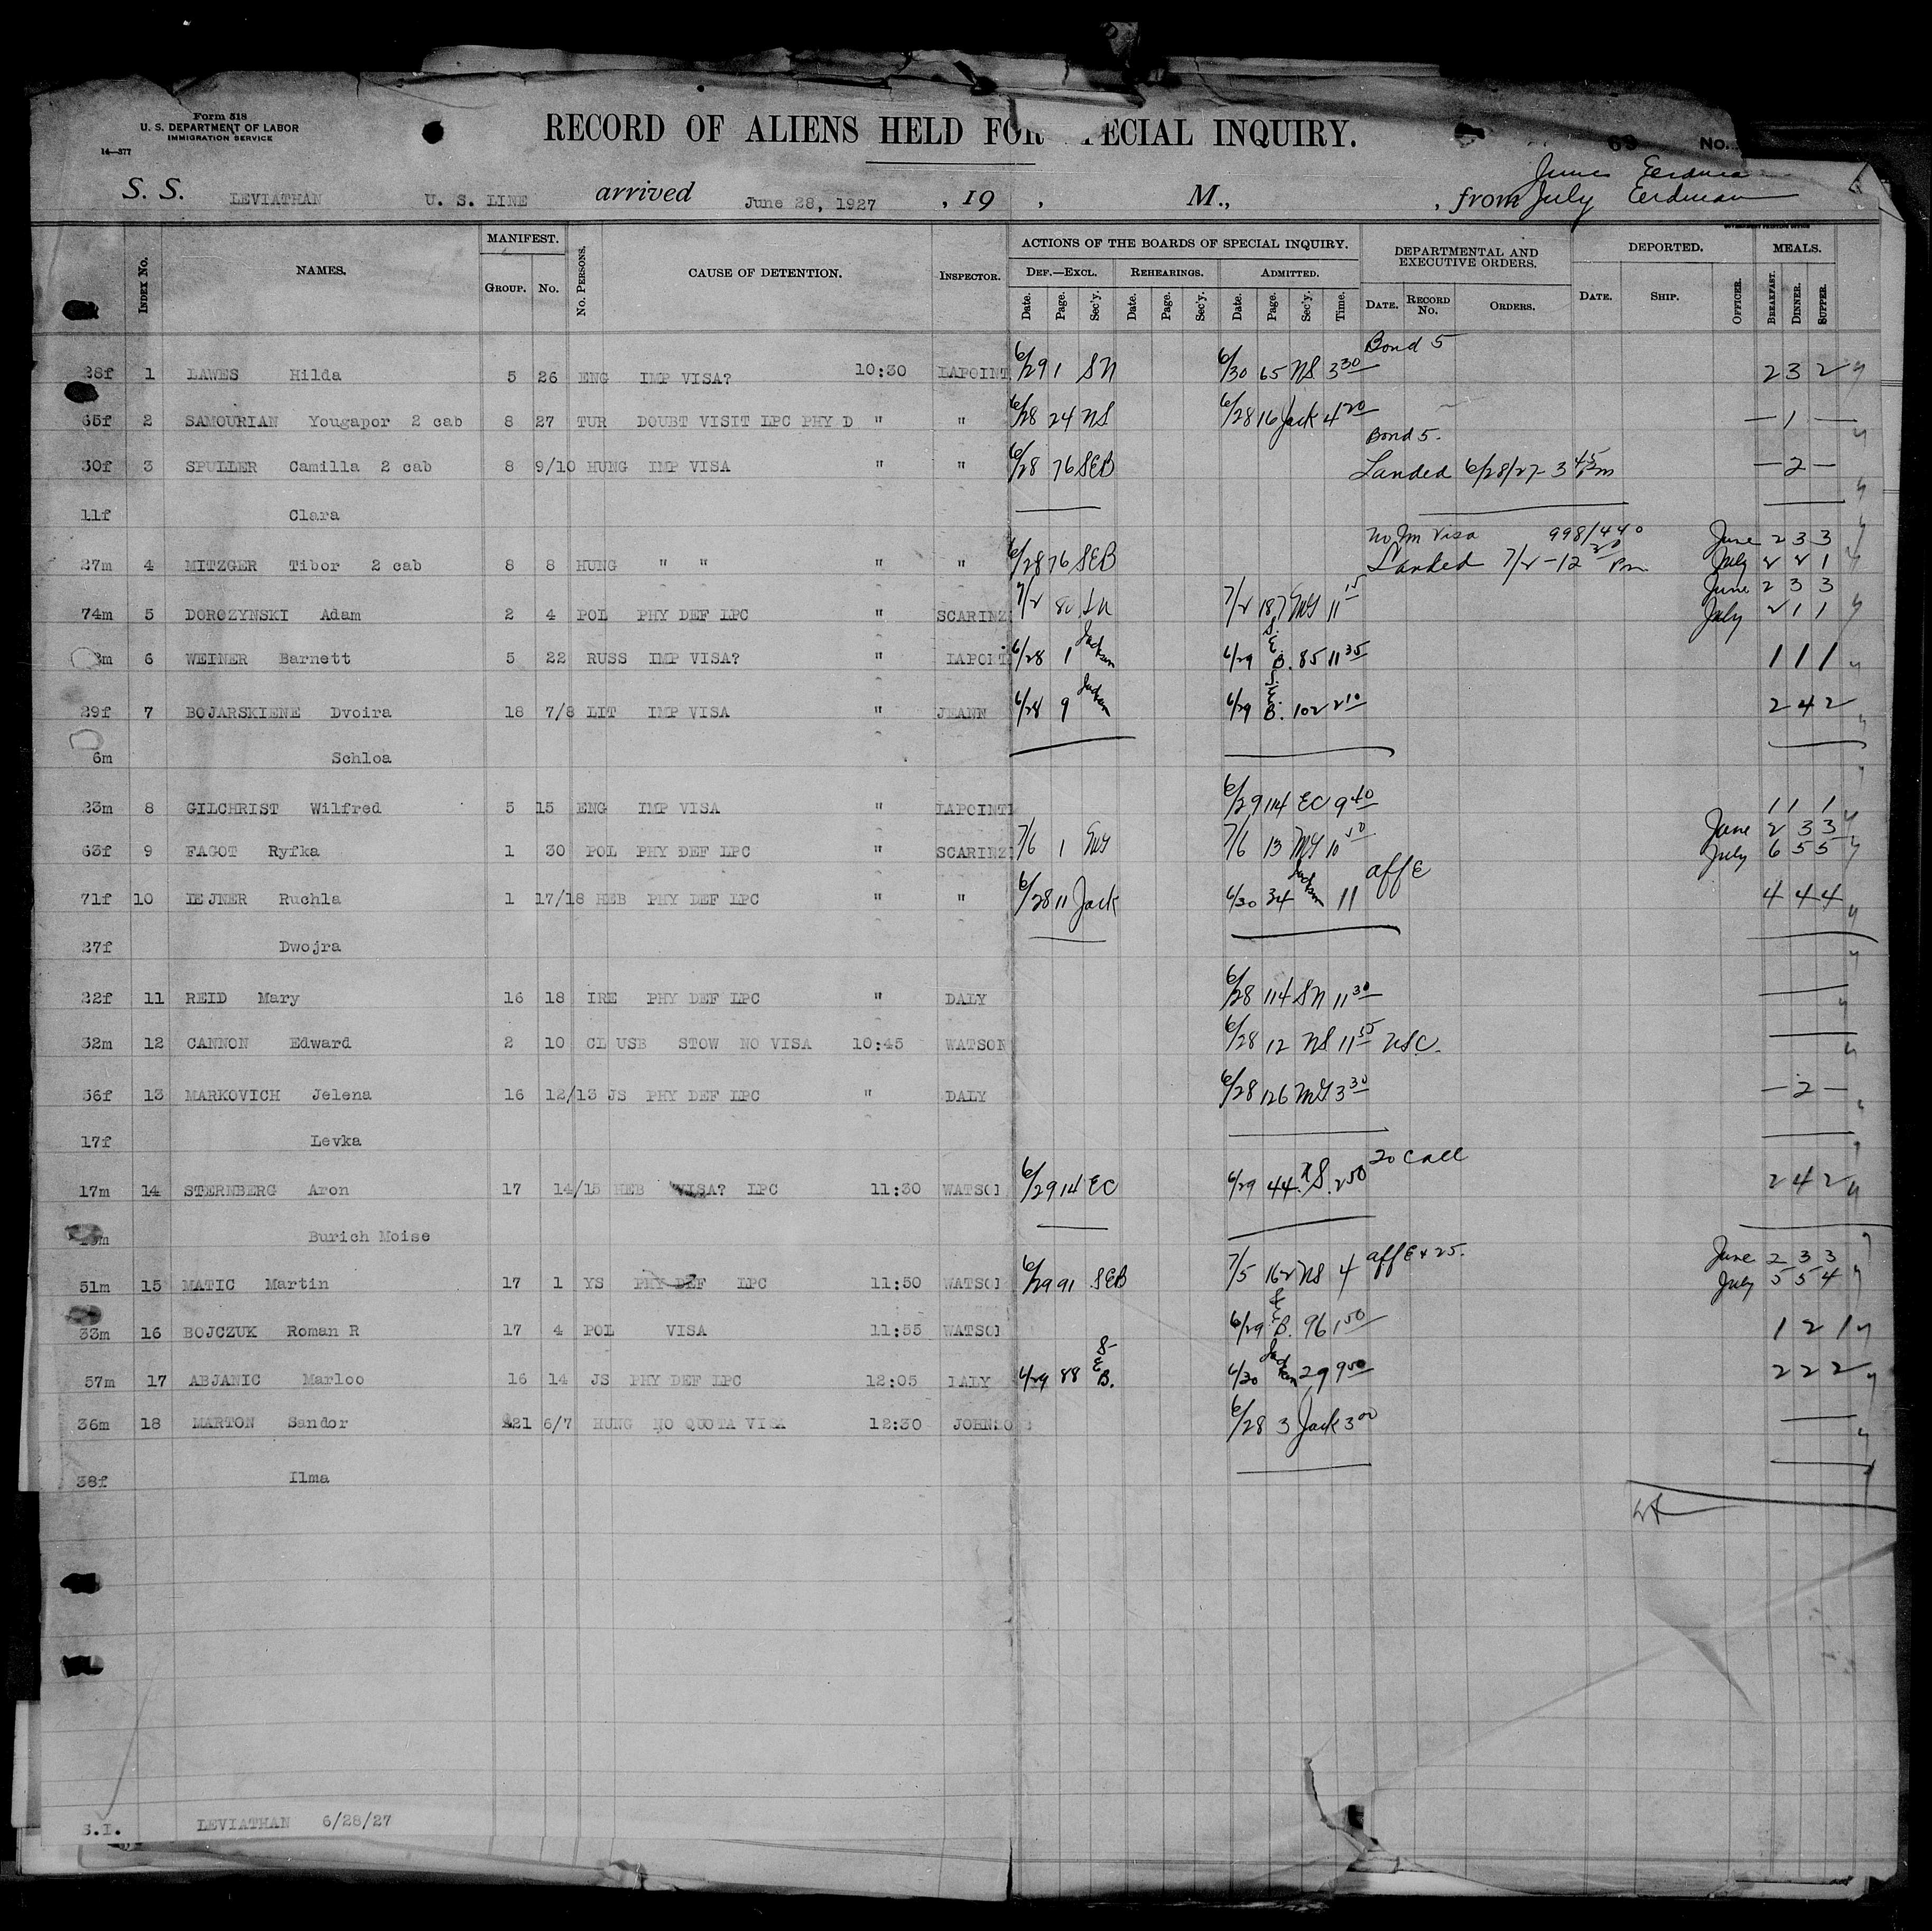 Form 518
U. S. DEPARTMENT OF LABOR
IMMIGRATION SERVICE
14—377
RECORD OF ALIENS HELD FOR SPECIAL INQUIRY.
69 No.
June
S. S. LEVIATHAN U. S. LINE arrived June 28, 1927 , 19 , M., , from July Eerdman
GOVERNMENT PRINTING OFFICE
INDEX NO. NAMES. MANIFEST. GROUP. NO. NO. PERSONS. CAUSE OF DETENTION. INSPECTOR. ACTIONS OF THE BOARDS OF SPECIAL INQUIRY. DEPARTMENTAL AND EXECUTIVE ORDERS. DEPORTED. MEALS.
DEF.—EXCL. REHEARINGS. ADMITTED.
Date. Page. Sec'y. Date. Page. Sec'y. Date. Page. Sec'y. Time. DATE. RECORD NO. ORDERS. DATE. SHIP. OFFICER. BREAKFAST. DINNER. SUPPER.
Bond 5
28f 1 DAWES Hilda 5 26 ENG IMP VISA? 10:30 LAPOINT 6/29 1 SN 6/30 65 NS 3 30 2 3 2
65f 2 SAMOURIAN Yougapor 2 cab 8 27 TUR DOUBT VISIT LPC PHY D " " 6/28 24 NS 6/28 16 Jack 4 20 — 1 —
Bond 5.
30f 3 SPULLER Camilla 2 cab 8 9/10 HUNG IMP VISA " " 6/28 76 SEB Landed 6/28/27 3 45 pm — 2 —
11f Clara
No Im Visa 998/440 June 2 3 3
27m 4 MITZGER Tibor 2 cab 8 8 HUNG " " " " 6/28 76 SEB Landed 7/2 - 12 30 Pm July 2 2 1
June 2 3 3
74m 5 DOROZYNSKI Adam 2 4 POL PHY DEF LPC " SCARINZ 7/2 80 SN 7/2 187 MY 11 15 July 2 1 1
3m 6 WEINER Barnett 5 22 RUSS IMP VISA? " LAPOINT 6/28 1 Jackson 6/29 S.E.B. 85 11 35 1 1 1
29f 7 BOJARSKIENE Dvoira 18 7/8 LIT IMP VISA " JEANN 6/28 9 Jackson 6/29 S.E.B. 102 2 10 2 4 2
6m Schloa
23m 8 GILCHRIST Wilfred 5 15 ENG IMP VISA " LAPOINT 6/29 114 EC 9 40 1 1 1
June 2 3 3
63f 9 FAGOT Ryfka 1 30 POL PHY DEF LPC " SCARINZ 7/6 1 7/6 13 MY 10 July 6 5 5
aff E
71f 10 LEJNER Ruchla 1 17/18 HEB PHY DEF LPC " " 6/28 11 Jack 6/30 34 Jackson 11 4 4 4
27f Dwojra
22f 11 REID Mary 16 18 IRE PHY DEF LPC " DALY 6/28 114 SN 11 30
32m 12 CANNON Edward 2 10 CL USB STOW NO VISA 10:45 WATSON 6/28 12 NS 11 55 USC.
56f 13 MARKOVICH Jelena 16 12/13 JS PHY DEF LPC " DALY 6/28 126 MY 3 30 — 2 —
17f Levka
20 call
17m 14 STERNBERG Aron 17 14/15 HEB VISA? LPC 11:30 WATSO 6/29 14 EC 6/29 44 NS. 2 50 2 4 2
Burich Moise
aff E & 25. June 2 3 3
51m 15 MATIC Martin 17 1 YS PHY DEF LPC 11:50 WATSO 6/29 91 SEB 7/5 162 NS 4 July 5 5 4
33m 16 BOJCZUK Roman R 17 4 POL VISA 11:55 WATSO 6/29 S.E.B. 96 1 50 1 2 1
57m 17 ABJANIC Marloo 16 14 JS PHY DEF LPC 12:05 DALY 6/29 88 S.E.B. 6/30 Jackson 29 9 50 2 2 2
36m 18 MARTON Sandor 21 6/7 HUNG NO QUOTA VISA 12:30 JOHNSO 6/28 3 Jack 3 00
38f Ilma
S.I. LEVIATHAN 6/28/27